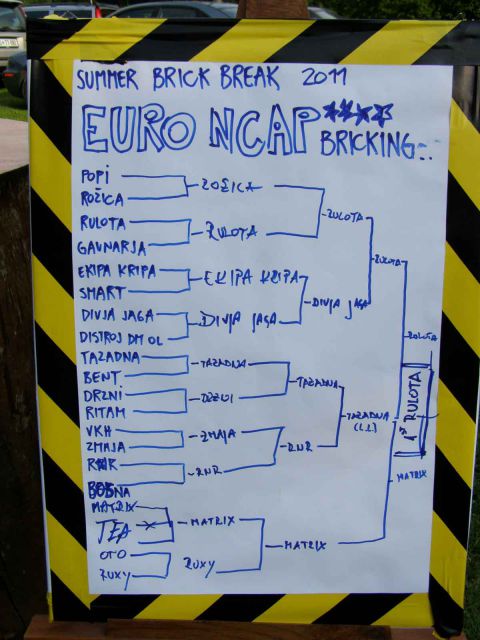 SUMMER BRICK BREAK 2011
EURO NCAP
BRICKING
POPI
ROŽICA
ROŽICA
RULOTA
GAVNARJA
RULOTA
RULOTA
EKIPA KRIPA
SMART
EKIPA KRIPA
DIVJA JAGA
DISTROJ DM OL
DIVJA JAGA
DIVJA JAGA
RULOTA
TAZADNA
BENT
TAZADNA
DRZNI
RITAM
DRZNI
TAZADNA
VKH
ZMAJA
ZMAJA
RNR
BOSNA
RNR
RNR
TAZADNA
(L.L.)
MATRIX
TEA
MATRIX
OTO
RUXY
RUXY
MATRIX
RULOTA
MATRIX
1ST RULOTA